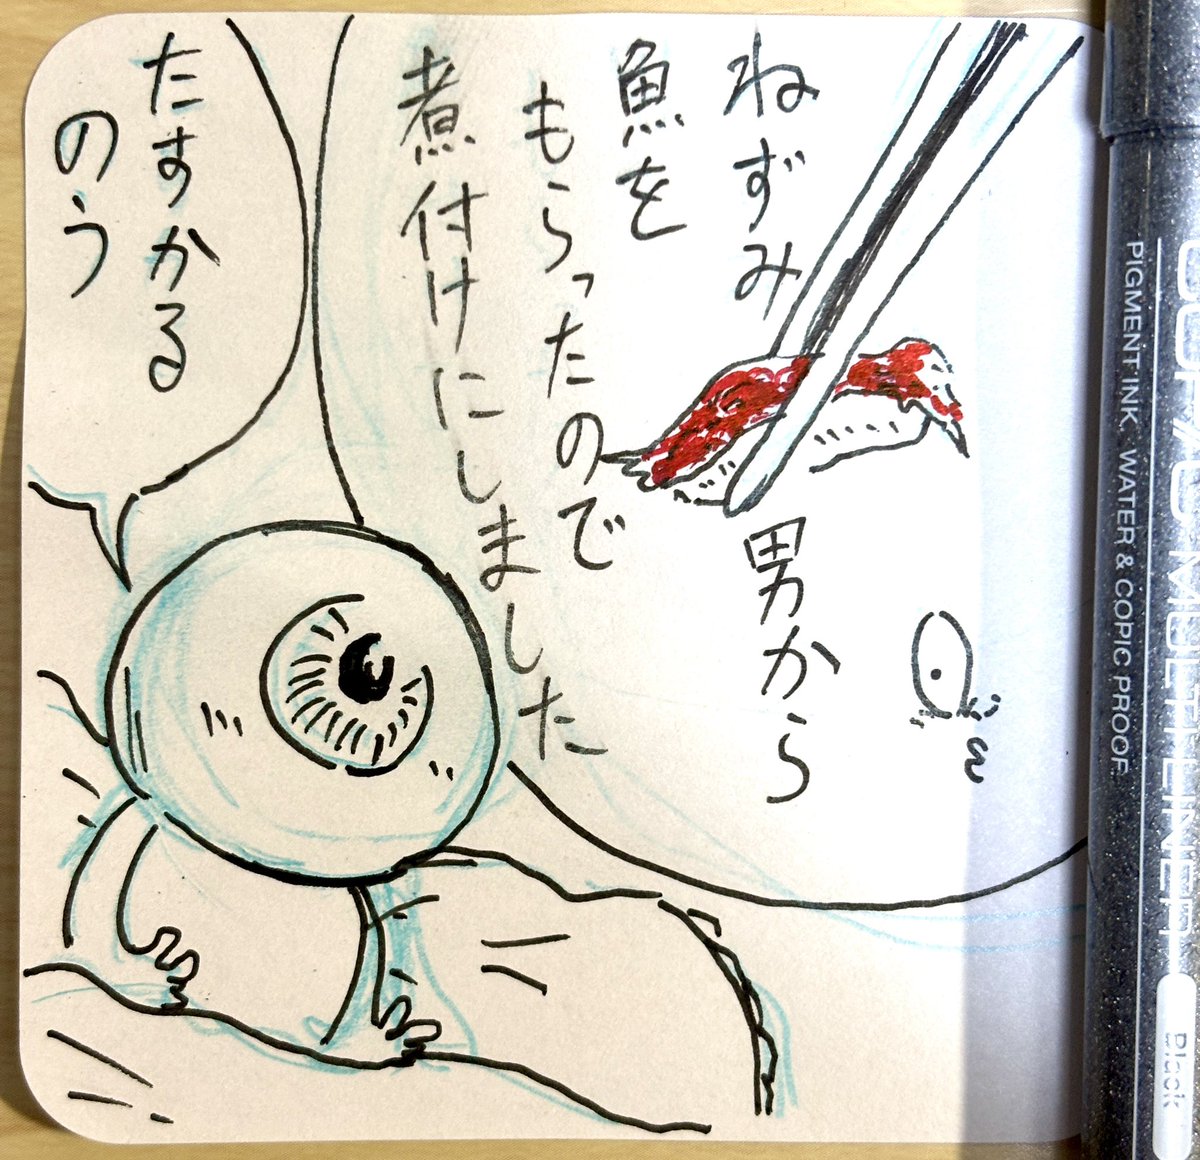 ねずみ
男から
魚を
もらったので
煮付けにしました
たすかる
のう
PIGMENT INK, WATER & COPIC PROOF
COPIC MULTILINER
Black